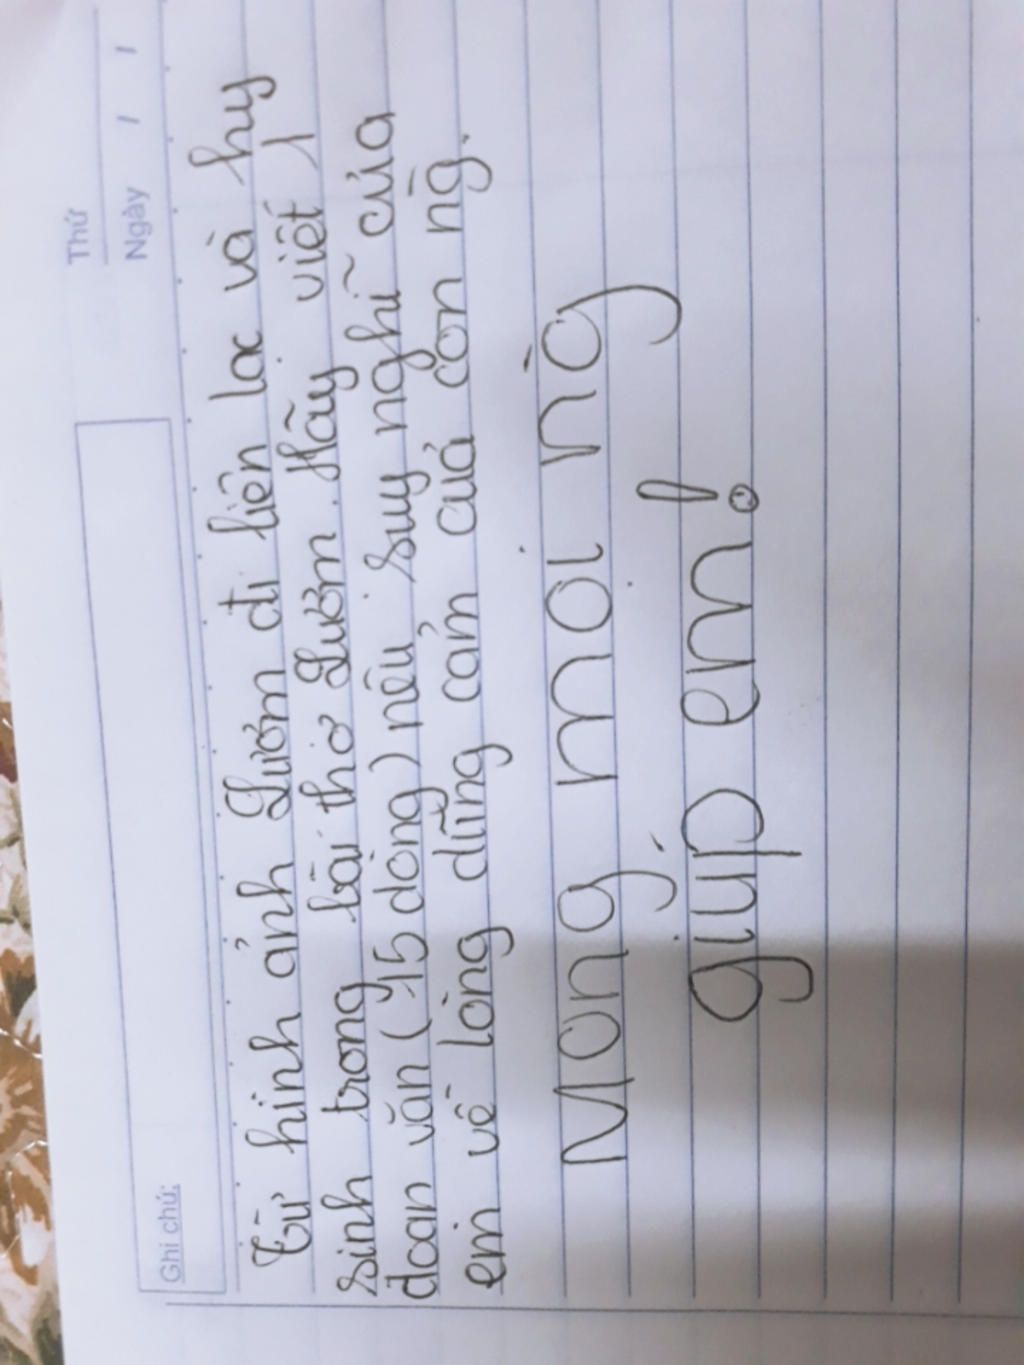 Thứ
Ngày / /
Ghi chú:
Từ hình ảnh Lượm đi liên lạc và hy
sinh trong bài thơ Lượm. Hãy viết 1
đoạn văn (15 dòng) nêu suy nghĩ của
em về lòng dũng cảm của con ng.
Mong mọi ng
giúp em!